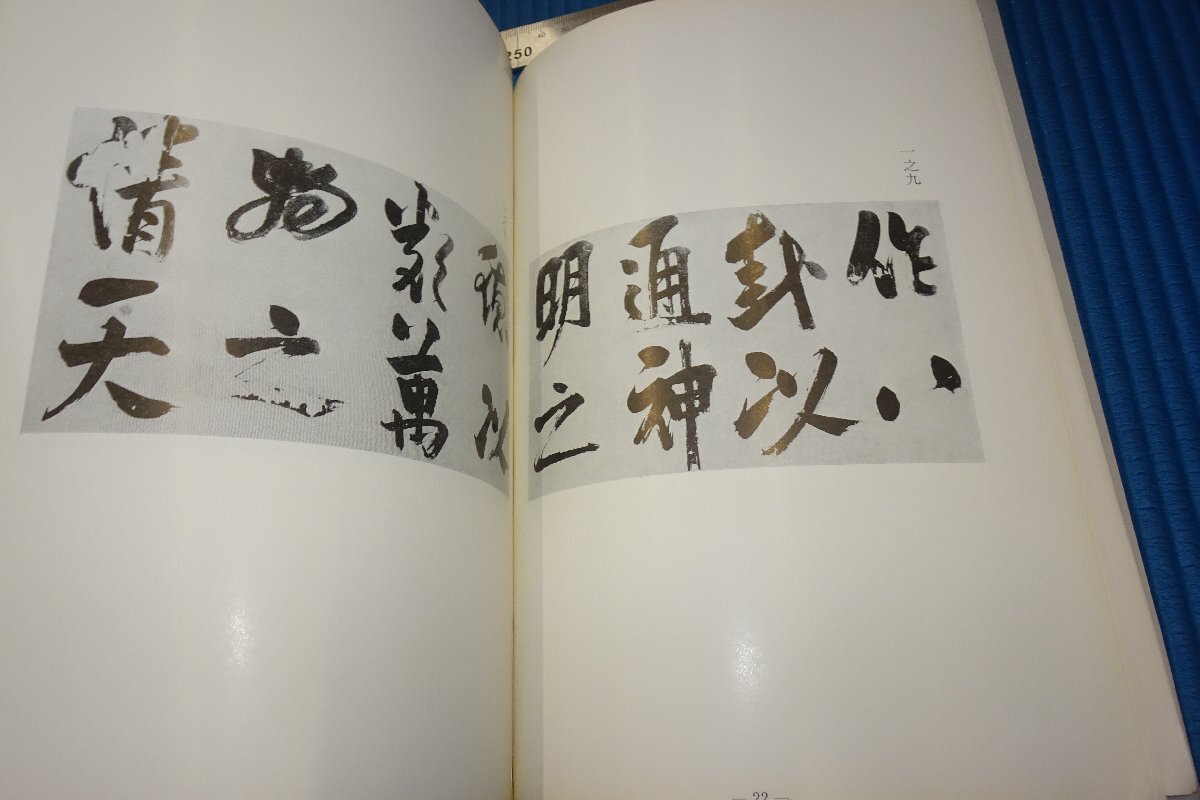 一之九
作八
卦以
通神
明之
德以
類萬
物之
情天
— 22 —
250
40